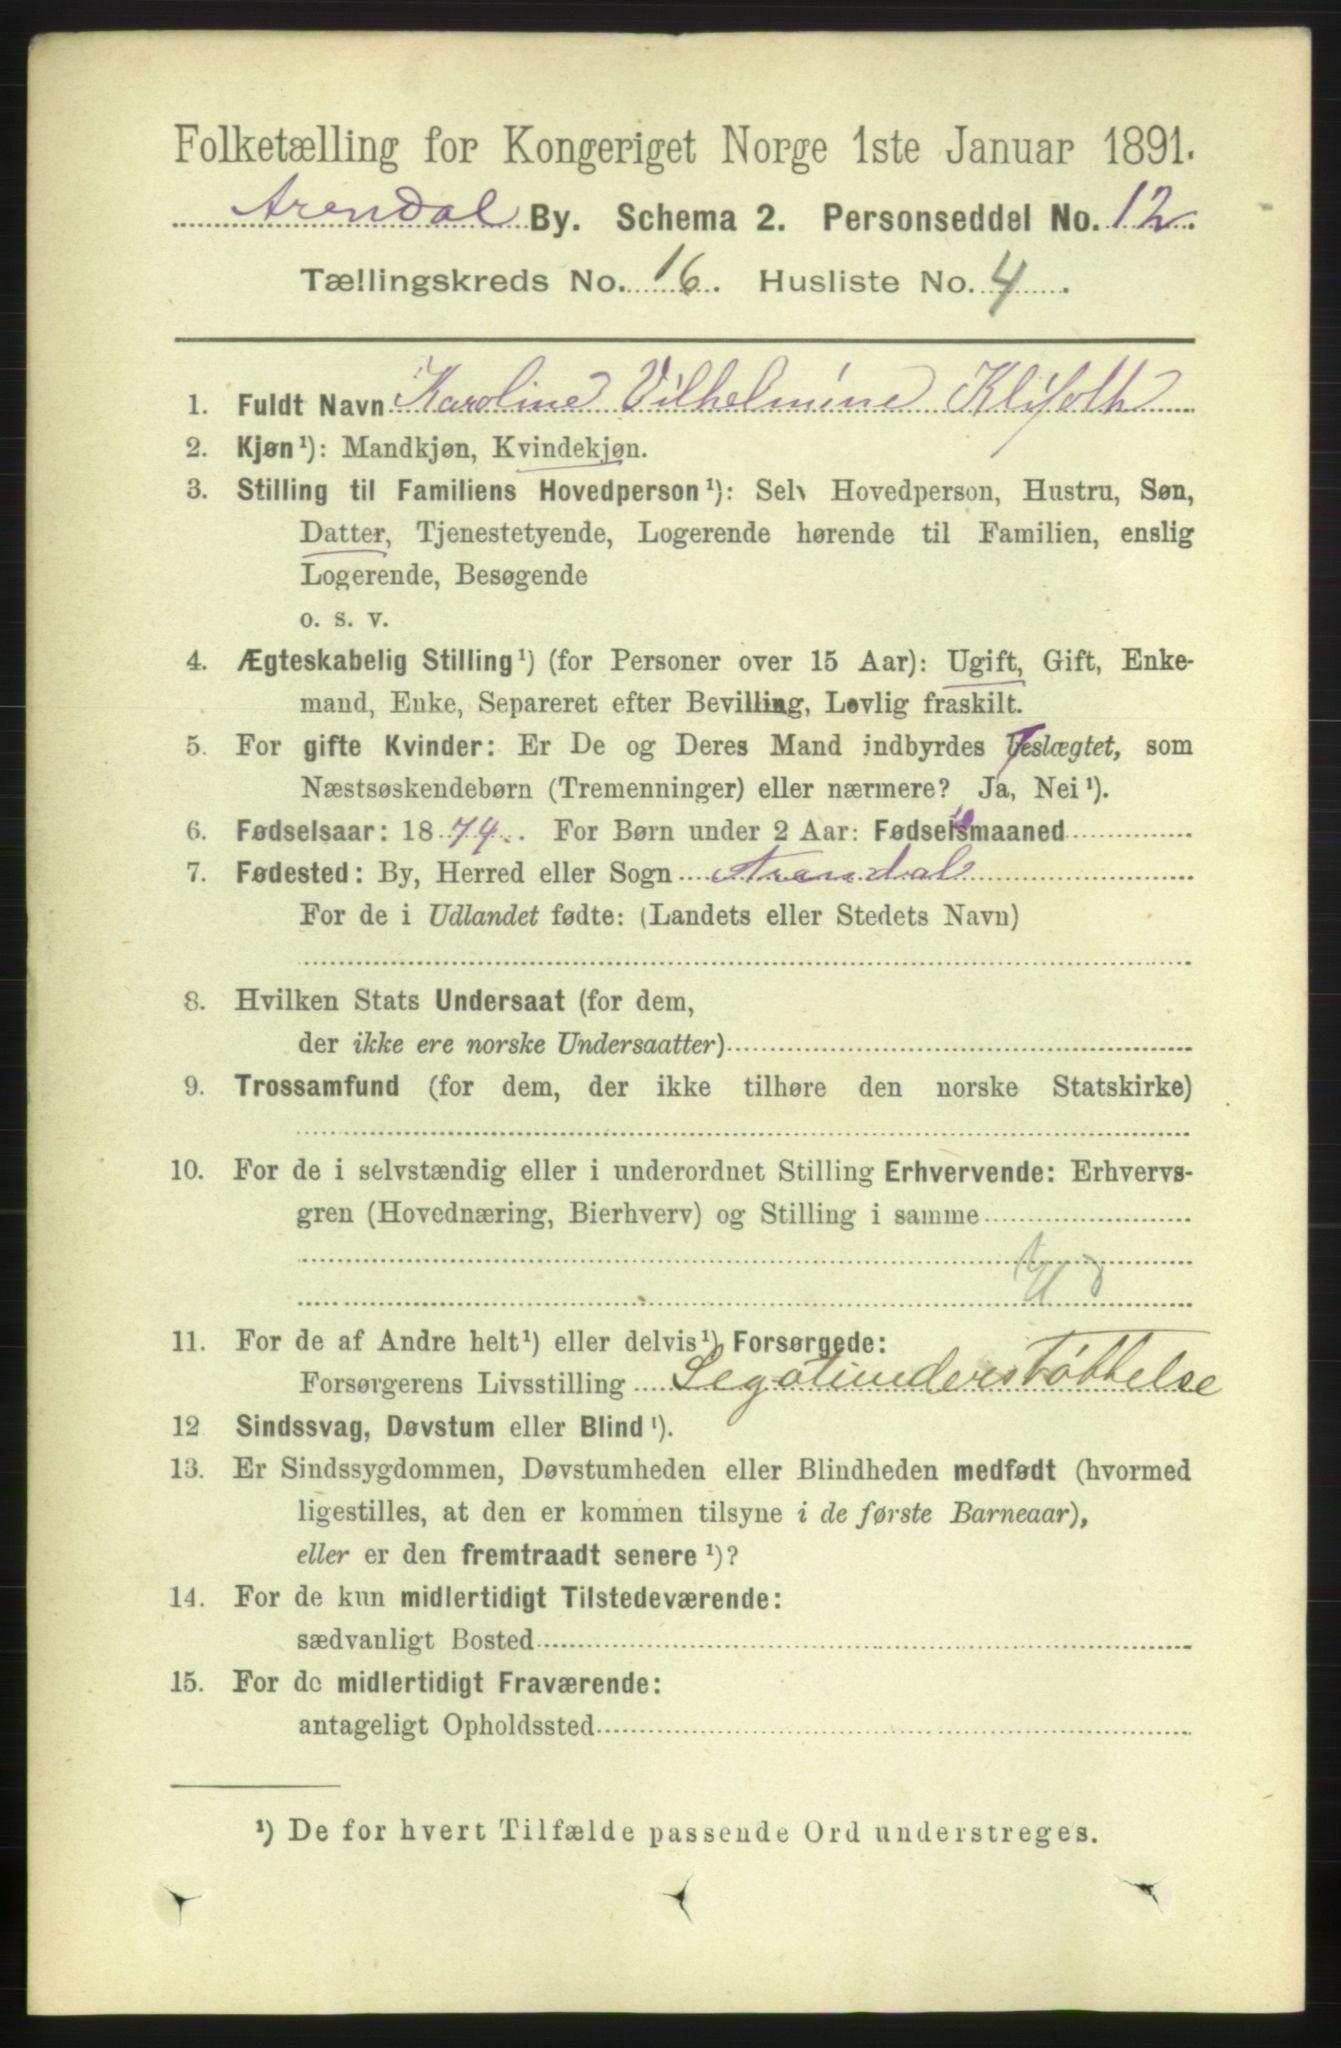 Folketælling for Kongeriget Norge 1ste Januar 1891.
Arendal By. Schema 2. Personseddel No. 12.
Tællingskreds No. 16. Husliste No. 4.
1. Fuldt Navn Karoline Vilhelmine Klifoth
2. Kjøn¹): Mandkjøn, Kvindekjøn.
3. Stilling til Familiens Hovedperson¹): Selv Hovedperson, Hustru, Søn,
Datter, Tjenestetyende, Logerende hørende til Familien, enslig
Logerende, Besøgende
o. s. v.
4. Ægteskabelig Stilling¹) (for Personer over 15 Aar): Ugift, Gift, Enke-
mand, Enke, Separeret efter Bevilling, Lovlig fraskilt.
5. For gifte Kvinder: Er De og Deres Mand indbyrdes beslægtet, som
Næstsøskendebørn (Tremenninger) eller nærmere? Ja, Nei¹).
6. Fødselsaar: 1874. For Børn under 2 Aar: Fødselsmaaned
7. Fødested: By, Herred eller Sogn Arendal
For de i Udlandet fødte: (Landets eller Stedets Navn)
8. Hvilken Stats Undersaat (for dem,
der ikke ere norske Undersaatter)
9. Trossamfund (for dem, der ikke tilhøre den norske Statskirke)
10. For de i selvstændig eller i underordnet Stilling Erhvervende: Erhvervs-
gren (Hovednæring, Bierhverv) og Stilling i samme
11. For de af Andre helt¹) eller delvis¹) Forsørgede:
Forsørgerens Livsstilling Legatunderstøttelse
12 Sindssvag, Døvstum eller Blind¹).
13. Er Sindssygdommen, Døvstumheden eller Blindheden medfødt (hvormed
ligestilles, at den er kommen tilsyne i de første Barneaar),
eller er den fremtraadt senere¹)?
14. For de kun midlertidigt Tilstedeværende:
sædvanligt Bosted
15. For de midlertidigt Fraværende:
antageligt Opholdssted
¹) De for hvert Tilfælde passende Ord understreges.